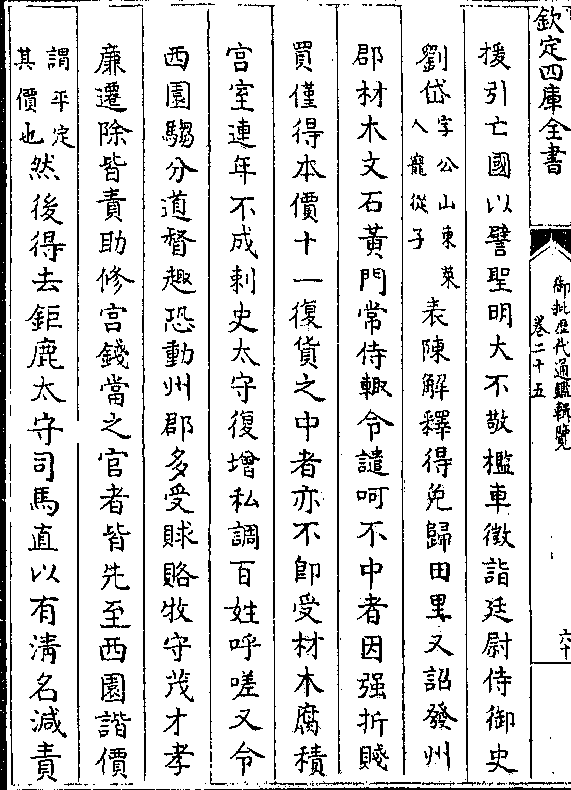 欽定四庫全書
御批歷代通鑑輯覽
卷二十五
六十
援引亡國以譬聖明大不敬檻車徵詣廷尉侍御史
劉岱字公山東萊人寵從子表陳解釋得免歸田里又詔發州
郡材木文石黃門常侍輙令譴呵不中者因强折賤
買僅得本價十一復貨之中者亦不即受材木腐積
宫室連年不成刺史太守復增私調百姓呼嗟又令
西園騶分道督趣恐動州郡多受賕賂牧守茂才孝
廉遷除皆責助修宫錢當之官者皆先至西園諧價
謂平定其價也然後得去鉅鹿太守司馬直以有清名減責